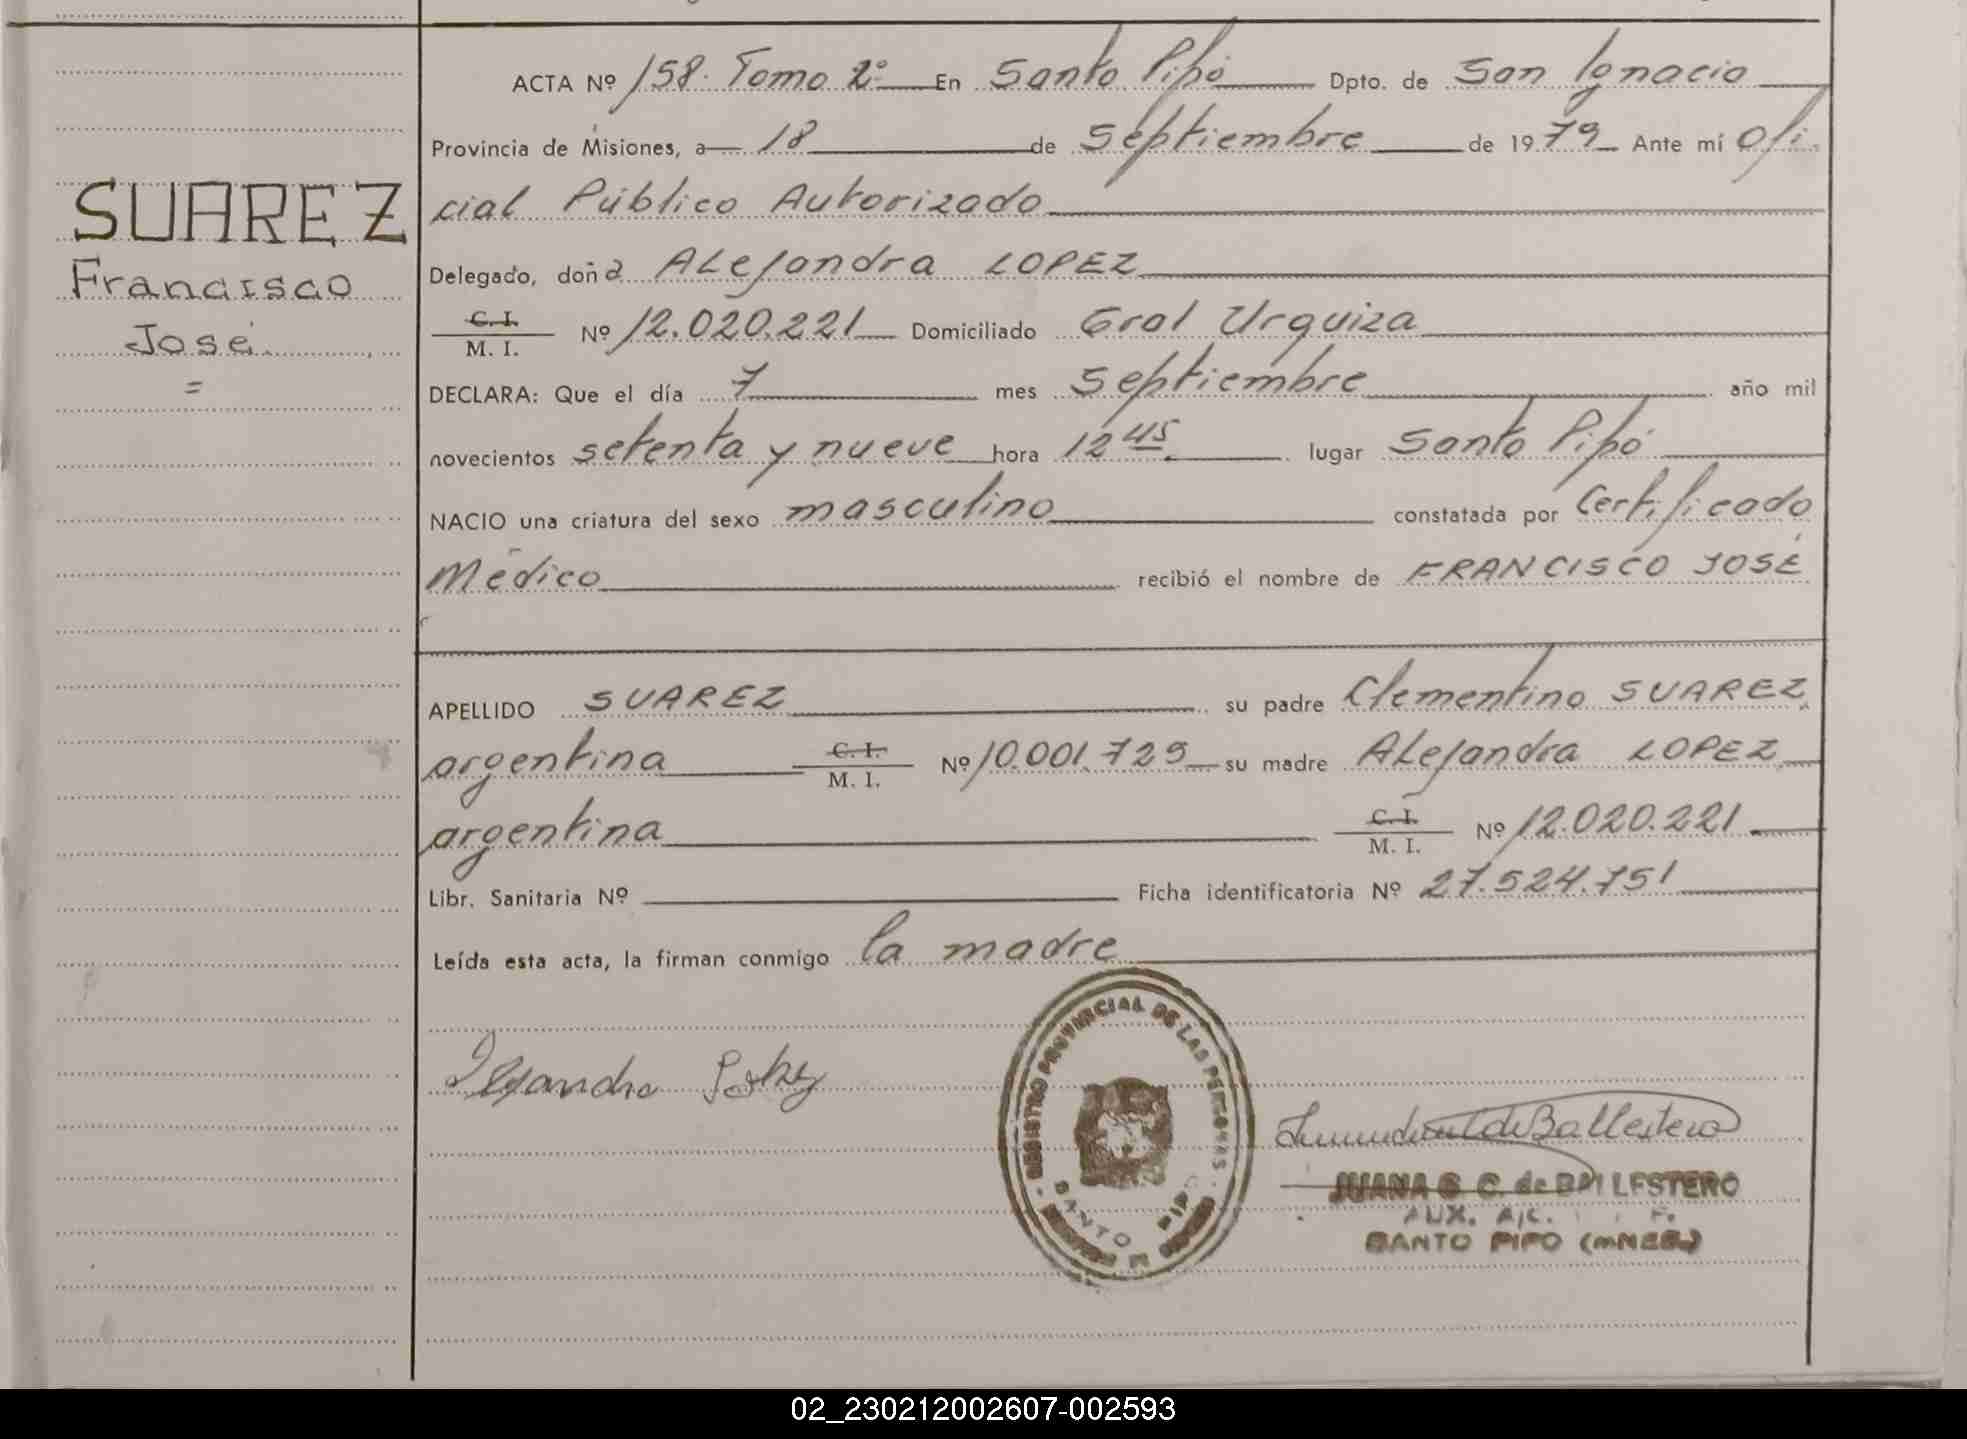 SUAREZ
Francisco
José
=
ACTA Nº 158. Tomo 2º En Santo Pipó Dpto. de San Ignacio
Provincia de Misiones, a 18 de Septiembre de 1979 Ante mí Ofi-
cial Público Autorizado
Delegado, doña Alejandra LOPEZ
C. I.
M. I. Nº 12.020.221 Domiciliado Gral Urquiza
DECLARA: Que el día 7 mes Septiembre año mil
novecientos setenta y nueve hora 12 45 lugar Santo Pipó
NACIO una criatura del sexo masculino constatada por Certificado
Médico recibió el nombre de FRANCISCO JOSÉ
APELLIDO SUAREZ su padre Clementino SUAREZ,
argentina C. I. M. I. Nº 10.001.729 su madre Alejandra LOPEZ
argentina C. I. M. I. Nº 12.020.221
Libr. Sanitaria Nº Ficha identificatoria Nº 27.524.751
Leída esta acta, la firman conmigo la madre
REGISTRO PROVINCIAL DE LAS PERSONAS
SANTO PIPO
de Ballestero
JUANA G. C. de BALLESTERO
AUX.
SANTO PIPO (MNES.)
02_230212002607-002593